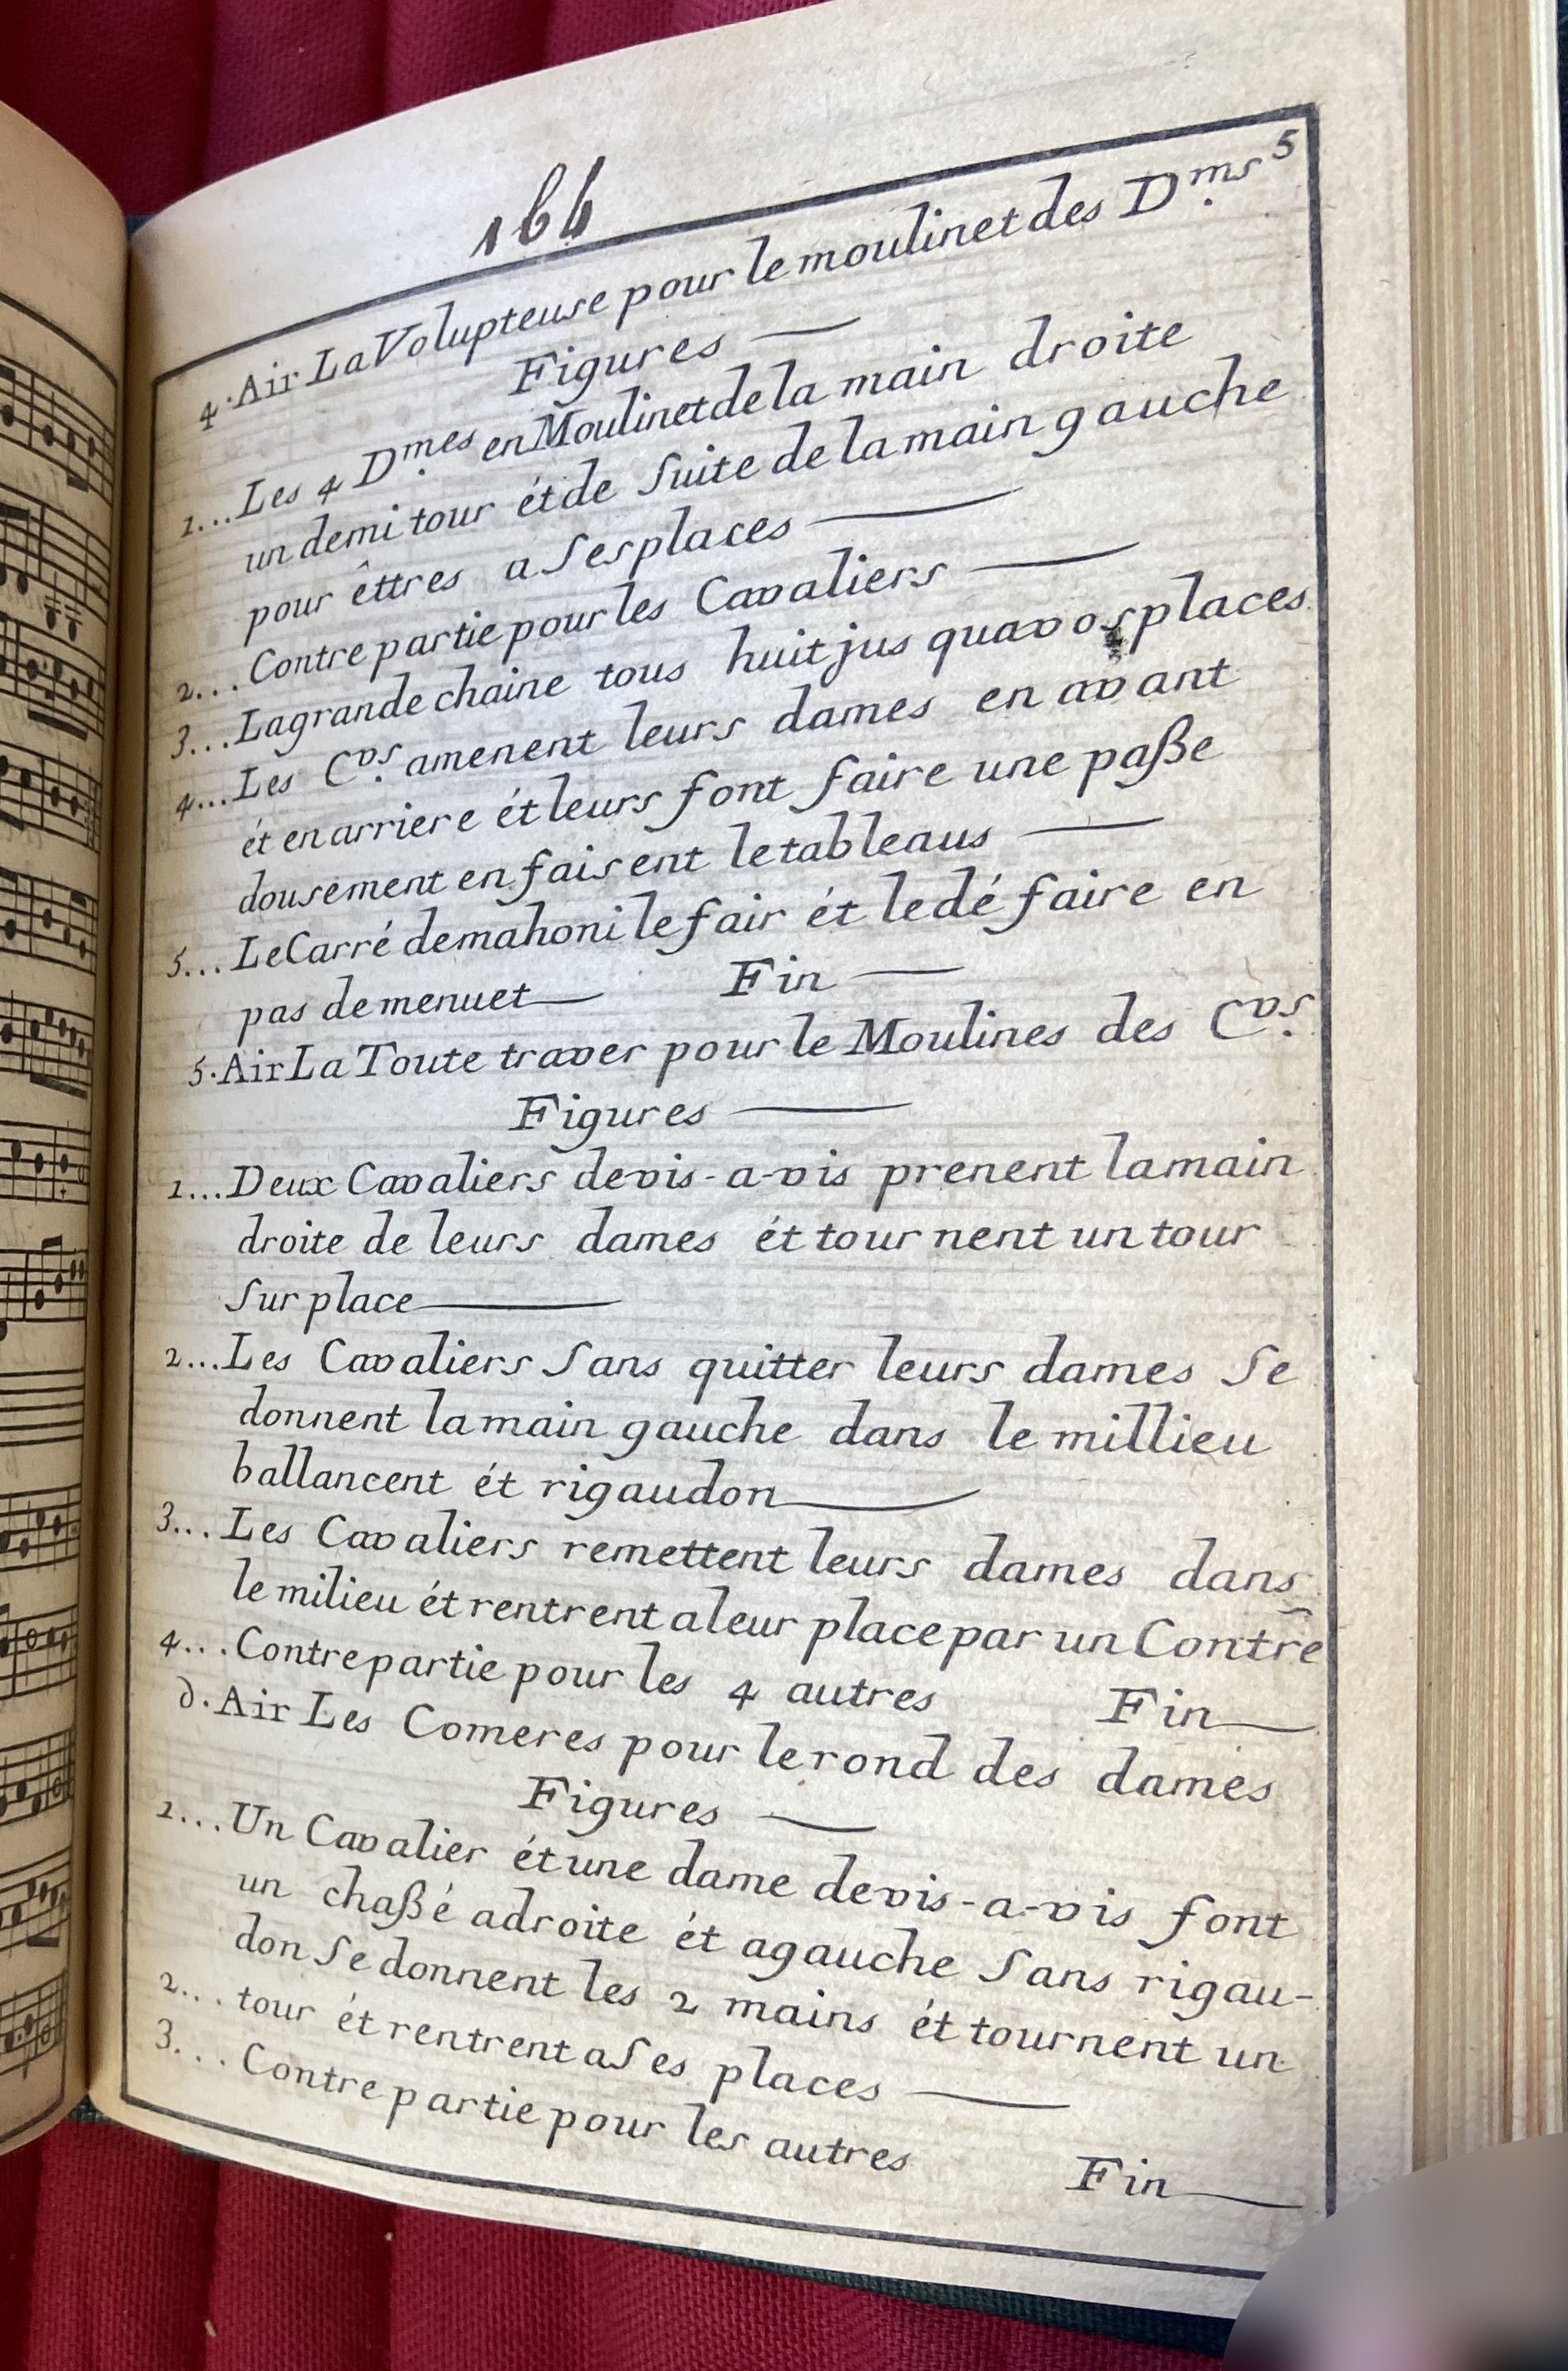 164
5
4. Air La Volupteuse pour le moulinet des D.ms
Figures
1... Les 4 D.mes en Moulinet de la main droite
un demi tour ét de Suite de la main gauche
pour êttres a Ses places
2... Contre partie pour les Cavaliers
3... La grande chaine tous huit jus qua vos places
4... Les C.vs amenent leurs dames en avant
ét en arriere ét leurs font faire une paße
dousement en faisent le tableaus
5... Le Carré de mahoni le fair ét le dé faire en
pas de menuet Fin
5. Air La Toute traver pour le Moulines des C.vs
Figures
1... Deux Cavaliers de vis-a-vis prenent la main
droite de leurs dames ét tour nent un tour
Sur place
2... Les Cavaliers Sans quitter leurs dames Se
donnent la main gauche dans le millieu
ballancent ét rigaudon
3... Les Cavaliers remettent leurs dames dans
le milieu ét rentrent a leur place par un Contre
4... Contre partie pour les 4 autres Fin
Air Les Comeres pour le rond des dames
Figures
1... Un Cavalier ét une dame de vis-a-vis font
un chaßé a droite ét a gauche Sans rigau-
don Se donnent les 2 mains ét tournent un
2... tour ét rentrent a Ses places
3... Contre partie pour les autres
Fin